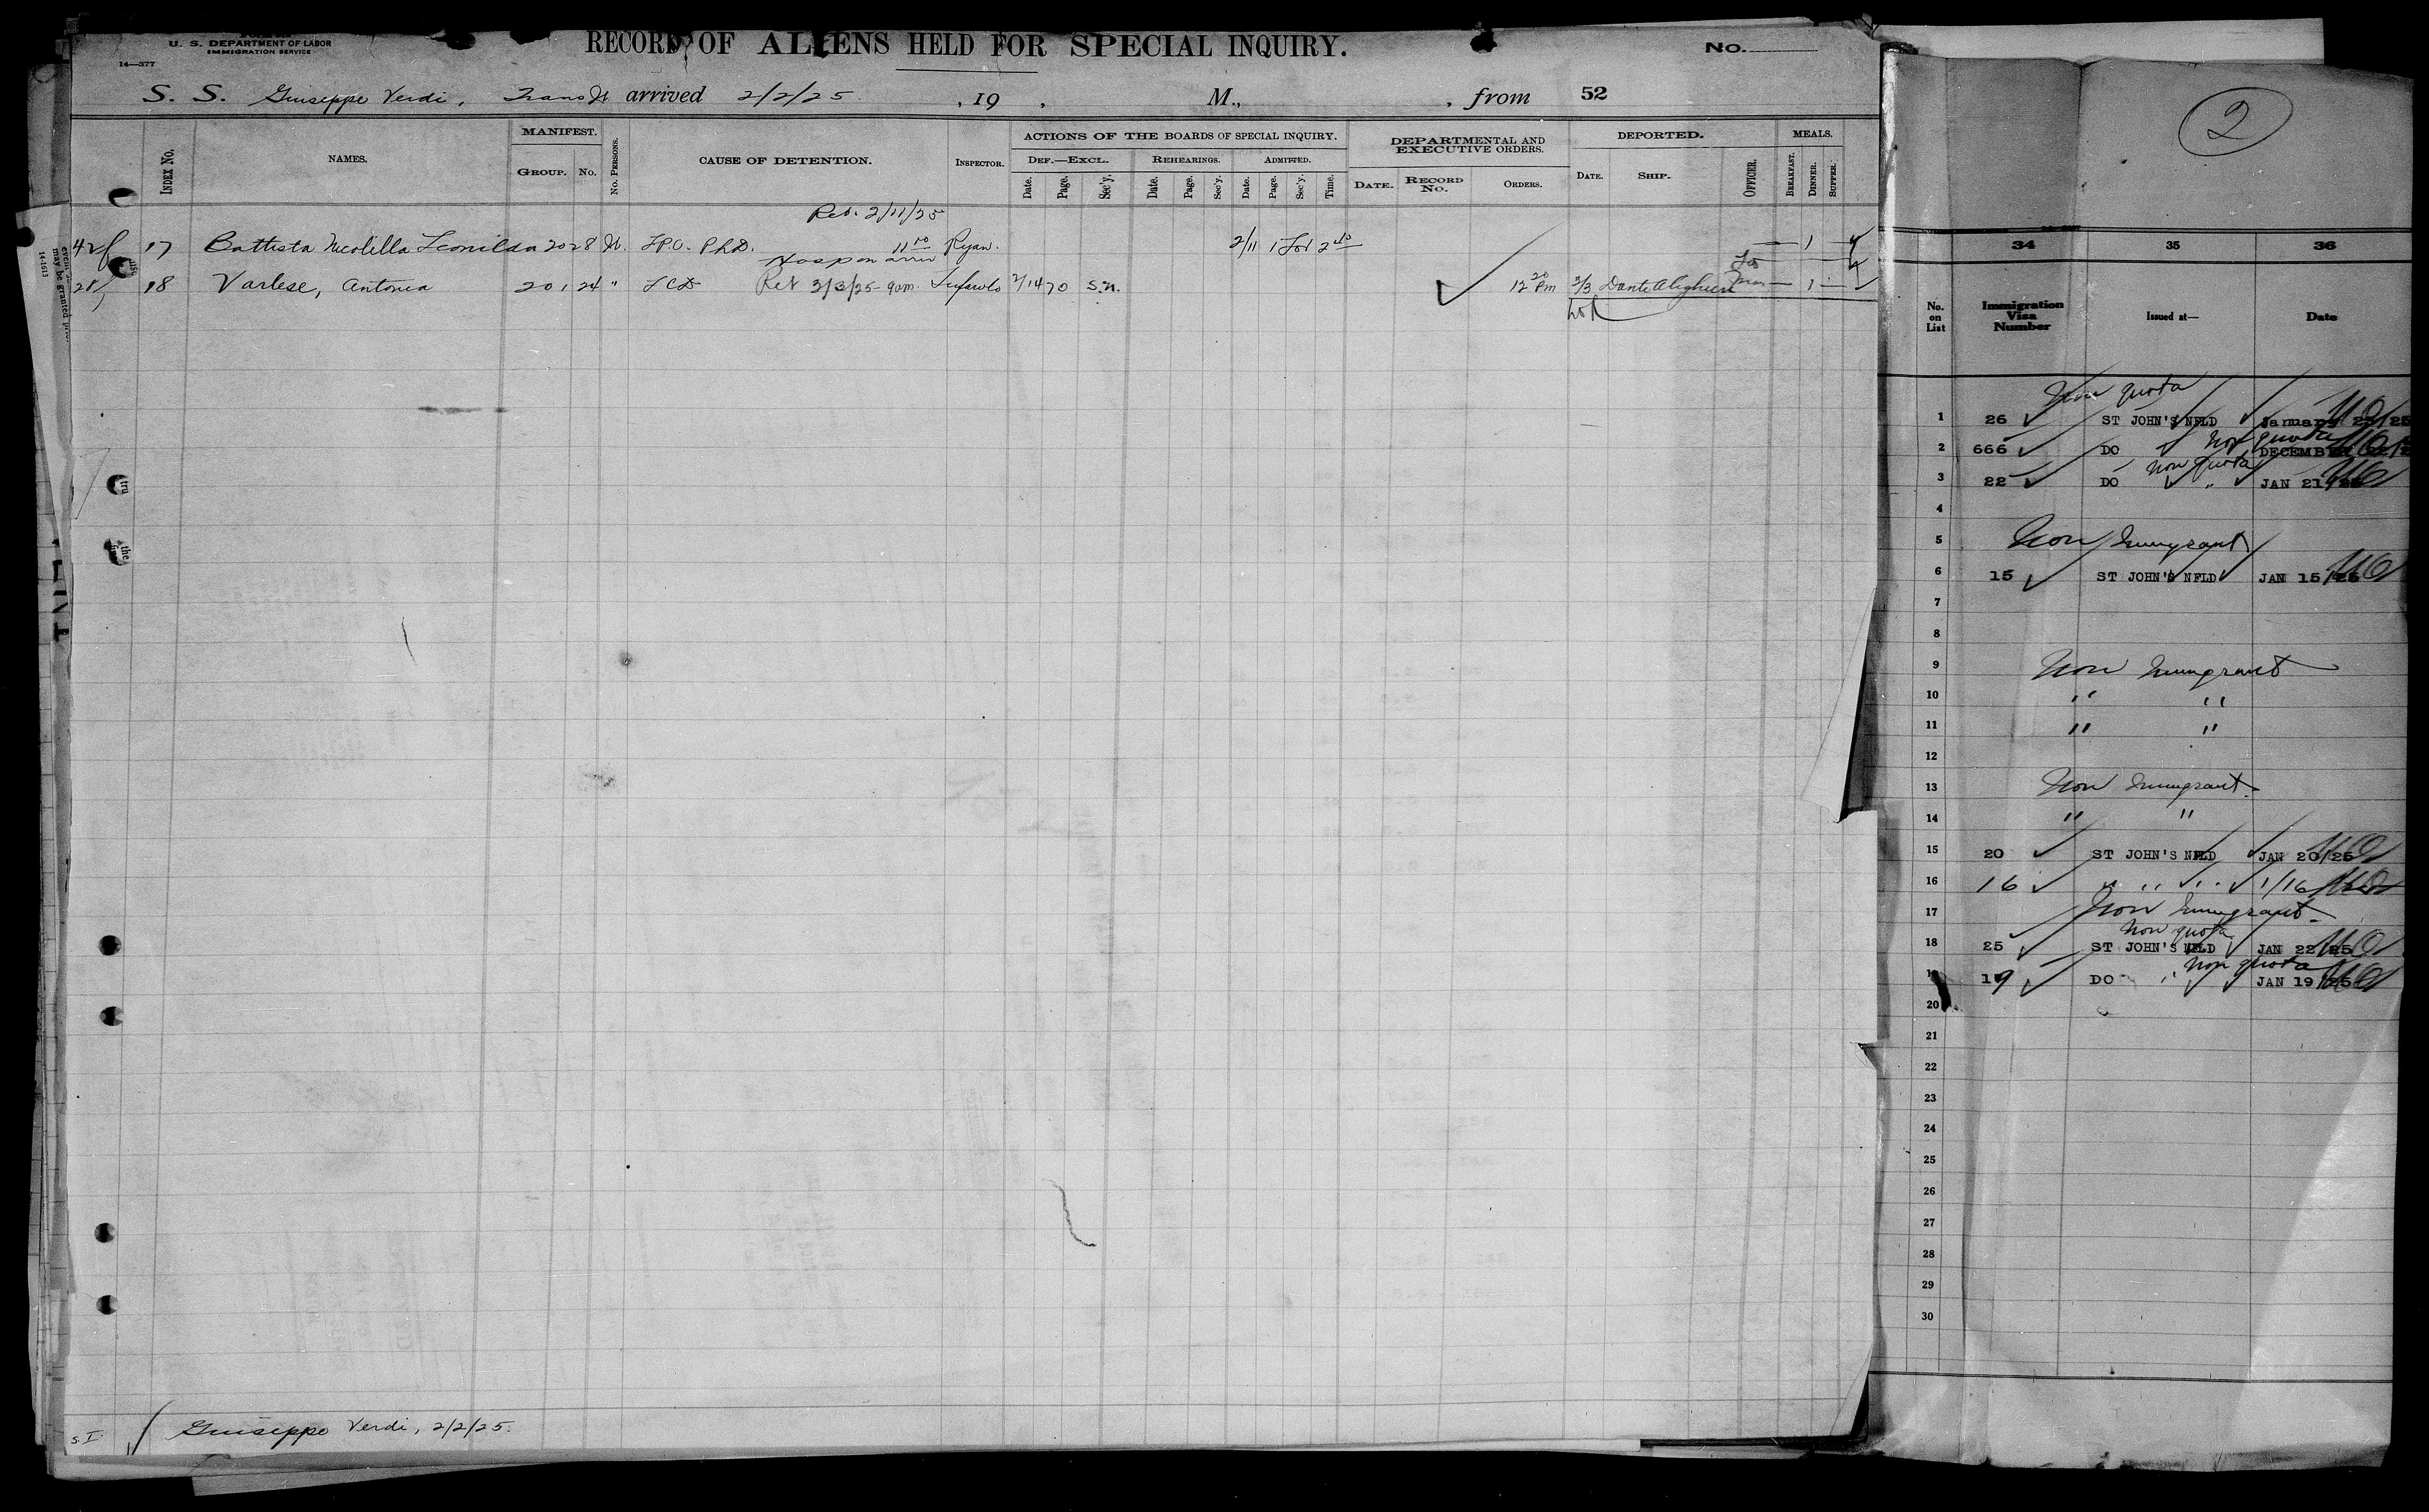 U. S. DEPARTMENT OF LABOR
IMMIGRATION SERVICE
14—377
RECORD OF ALIENS HELD FOR SPECIAL INQUIRY.
No.
S. S. Giuseppe Verdi, arrived 2/2/25 , 19 , M., , from 52
INDEX No.
NAMES.
MANIFEST.
GROUP. No.
No. PERSONS.
CAUSE OF DETENTION.
INSPECTOR.
ACTIONS OF THE BOARDS OF SPECIAL INQUIRY.
DEF.—EXCL. REHEARINGS. ADMITTED.
Date. Page. Sec'y. Date. Page. Sec'y. Date. Page. Sec'y. Time.
DEPARTMENTAL AND
EXECUTIVE ORDERS.
DATE. RECORD No. ORDERS.
DEPORTED.
DATE. SHIP. OFFICER.
MEALS.
BREAKFAST. DINNER. SUPPER.
Ret. 2/11/25
17 Battista Nicolella Leonilda 20 28 PhD. 11 10 Ryan. 2/11 1 2 40 1
Hosp on arriv
18 Varlese, Antonia 20 1 24 " LCD Ret 3/3/25 9 am. 2/14 70 S.N. 12 20 Pm 3/3 Dante Alighieri 1
Giuseppe Verdi, 2/2/25.
S. I
2
34 35 36
No. on List
Immigration Visa Number
Issued at—
Date
Non quota
1 26 ST JOHN'S NFLD January 23/25
Non quota
2 666 DO " DECEMBER
Non quota
3 22 DO " JAN 21/25
4
5 Non Immigrant
6 15 ST JOHN'S NFLD JAN 15/25
7
8
9 Non Immigrant
10 " "
11 " "
12
13 Non Immigrant.
14 " "
15 20 ST JOHN'S NFLD JAN 20/25
16 16 " " " 1/16
17 Non Immigrant.
Non quota
18 25 ST JOHN'S NFLD JAN 22/25
Non quota
19 DO " JAN 19/25
20
21
22
23
24
25
26
27
28
29
30